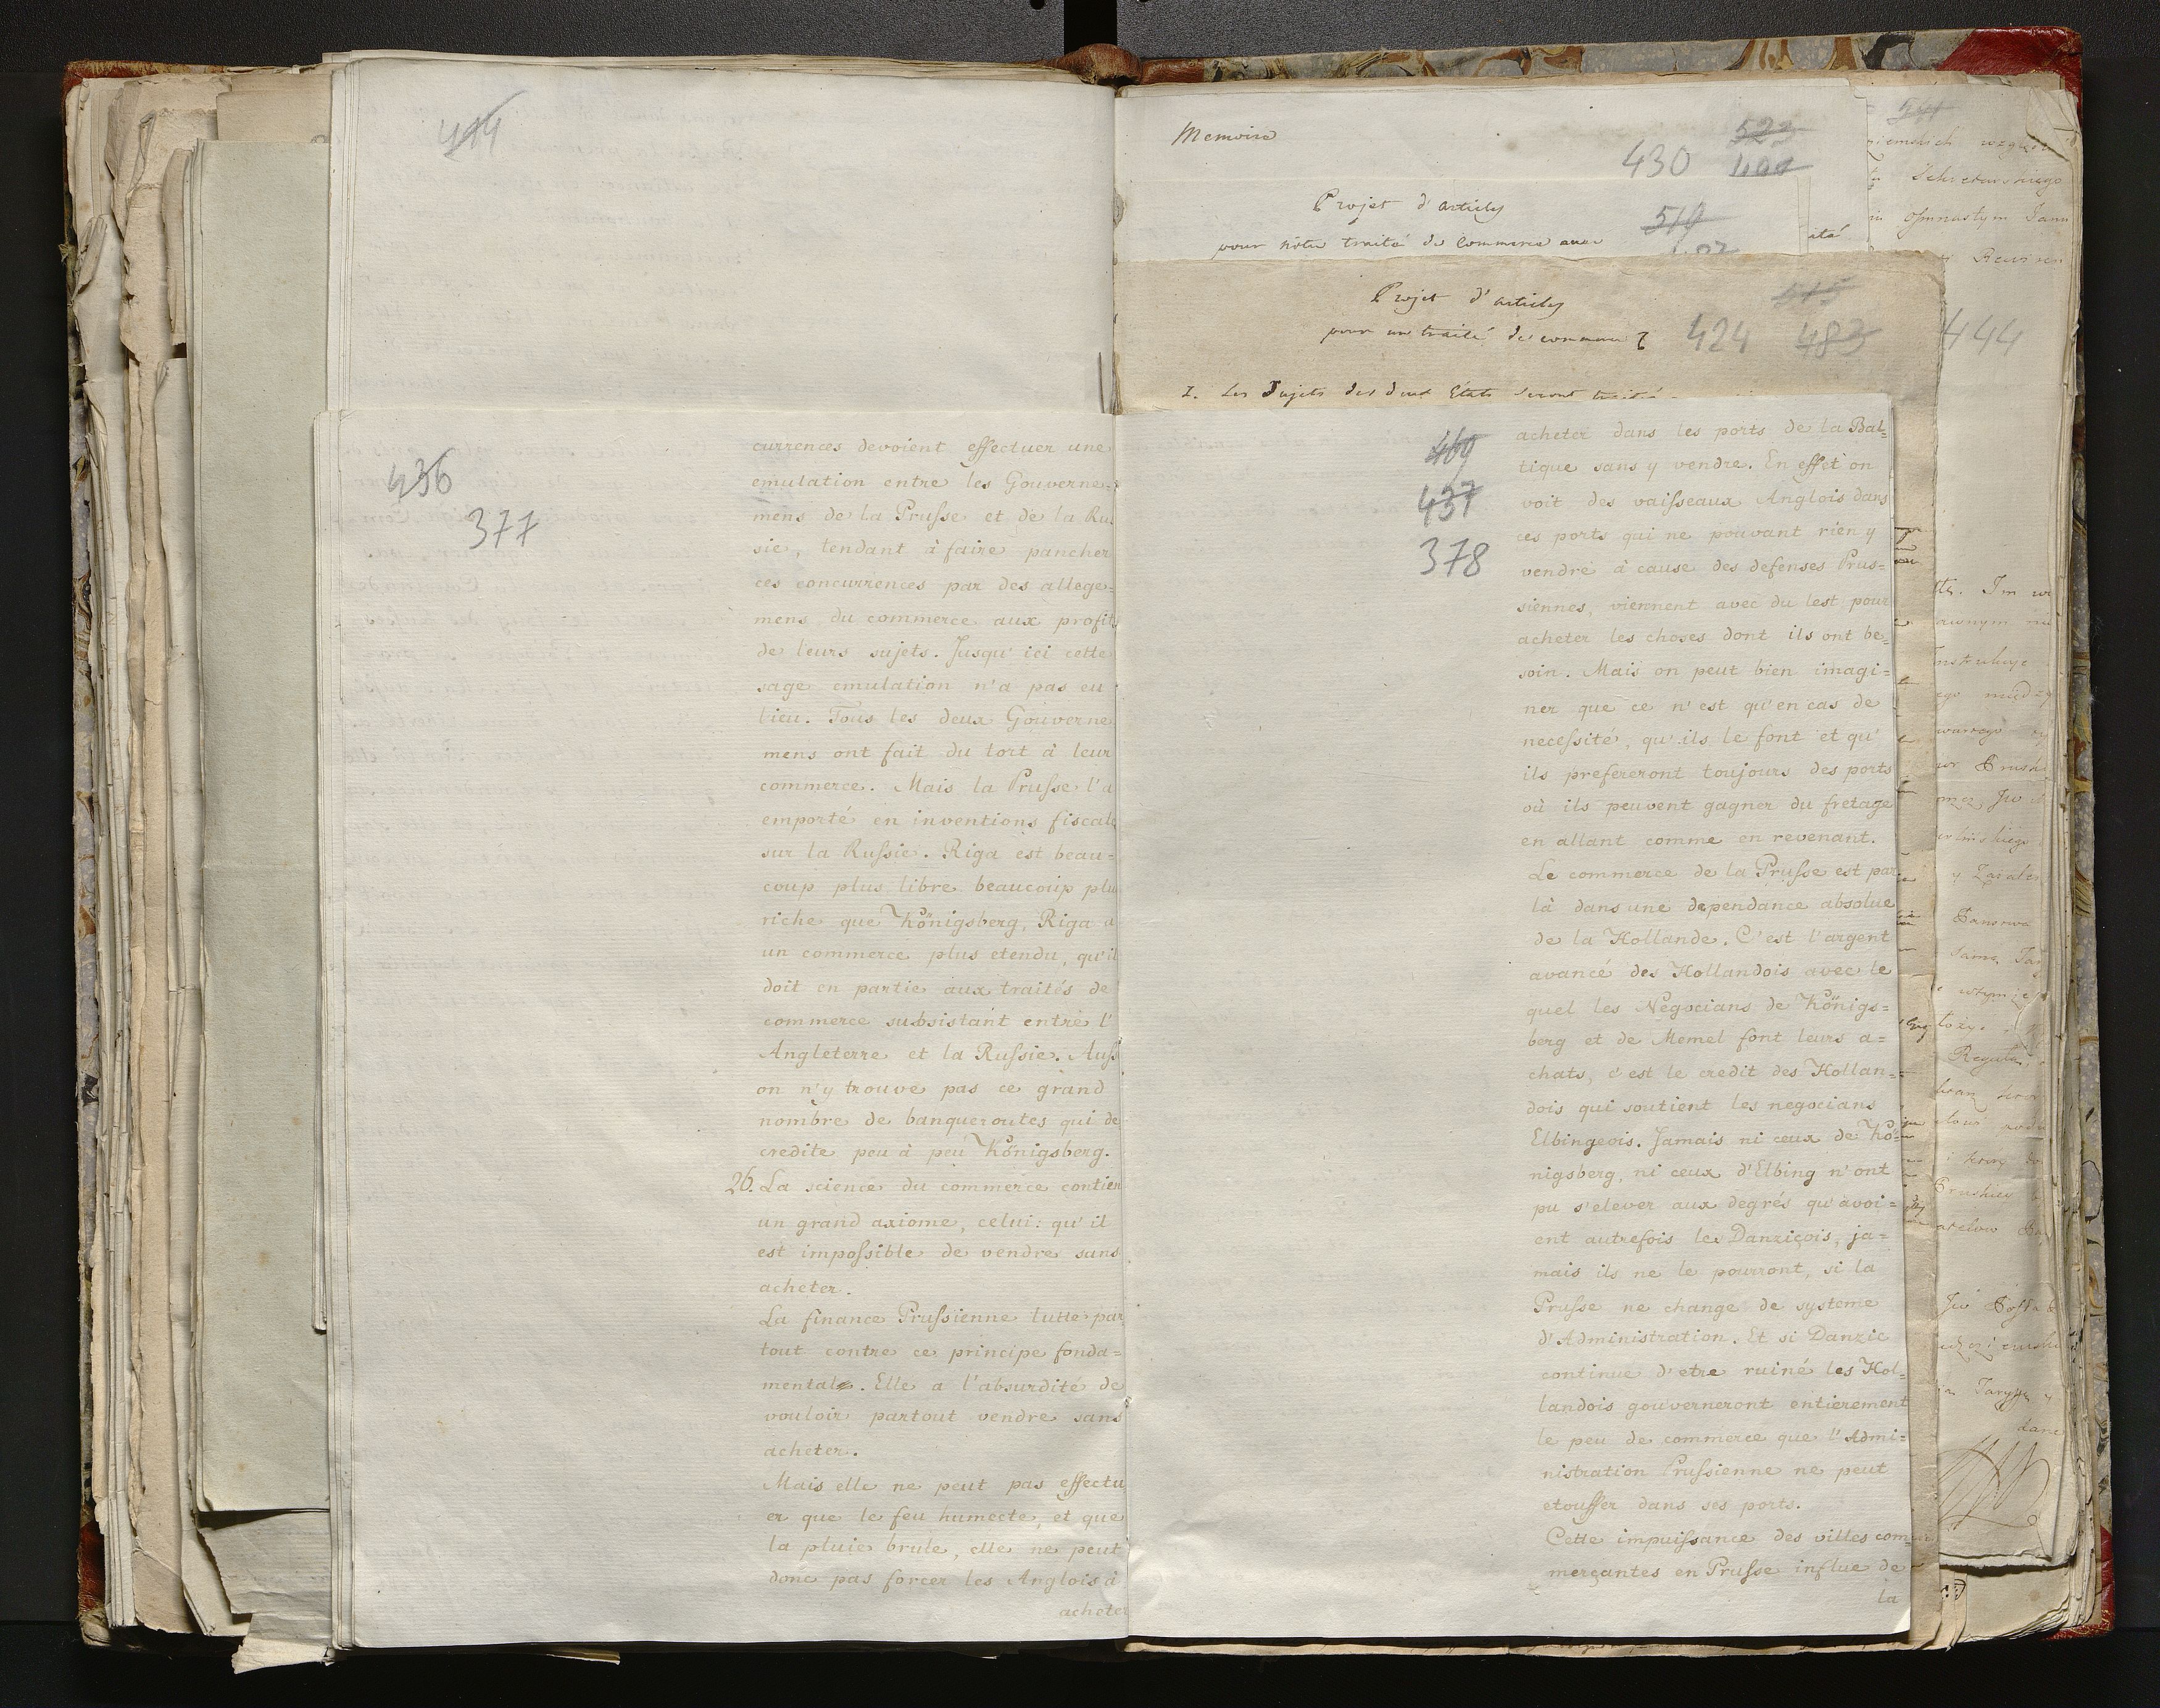 414
436
377
currences devoient effectuer une
emulation entre les Gouverne=
mens de la Prusse et de la Rus
sie, tendant à faire pancher
ces concurrences par des allege=
mens du commerce aux profits
de leurs sujets. Jusqu'ici cette
sage emulation n'a pas eu
lieu. Tous les deux Gouverne
mens ont fait du tort à leur
commerce. Mais la Prusse l'a
emporté en inventions fiscale
sur la Russie. Riga est beau=
coup plus libre beaucoup plu
riche que Königsberg, Riga a
un commerce plus etendu, qu'il
doit en partie aux traités de
commerce subsistant entre l'
Angleterre et la Russie. Auss
on n'y trouve pas ce grand
nombre de banqueroutes qui de
credite peu à peu Königsberg.
26. La science du commerce contien
un grand axiome, celui: qu'il
est impossible de vendre sans
acheter.
La finance Prussienne lutte par
tout contre ce principe fonda=
mental. Elle a l'absurdité de
vouloir partout vendre sans
acheter.
Mais elle ne peut pas effectu
er que le feu humecte, et que
la pluie brule, elle ne peut
donc pas forcer les Anglois à
acheter
Memoire
523
430
Projet d'articles
519
pour nôtre traité de Commerce avec
ité
Projet d'articles
515
pour un traité de commerce
424 483
1. Les Sujets des deux Etats seront traité
469
437
378
acheter dans les ports de la Bal=
tique sans y vendre. En effet on
voit des vaisseaux Anglois dans
ces ports qui ne pouvant rien y
vendre à cause des defenses Prus=
siennes, viennent avec du lest pour
acheter les choses dont ils ont be=
soin. Mais on peut bien imagi=
ner que ce n'est qu'en cas de
necessité, qu'ils le font et qu'
ils prefereront toujours des ports
où ils peuvent gagner du fretage
en allant comme en revenant.
Le commerce de la Prusse est par
là dans une dependance absolue
de la Hollande. C'est l'argent
avancé des Hollandois avec le
quel les Negocians de Königs=
berg et de Memel font leurs a=
chats, c'est le credit des Hollan=
dois qui soutient les negocians
Elbingeois. Jamais ni ceux de Kö=
nigsberg, ni ceux d'Elbing n'ont
pu s'elever aux degrés qu'avoi=
ent autrefois les Danziçois, ja=
mais ils ne le pourront, si la
Prusse ne change de systeme
d'Administration. Et si Danzic
continue d'etre ruiné les Hol=
landois gouverneront entierement
le peu de commerce que l'Admi=
nistration Prussienne ne peut
etouffer dans ses ports.
Cette impuissance des villes com=
merçantes en Prusse influe de
la
444